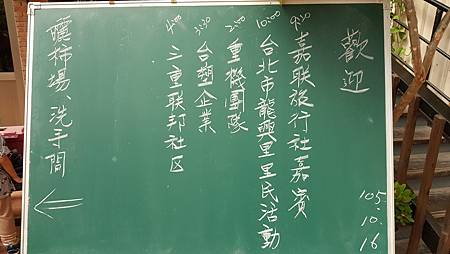 歡迎
105.10.16
9:30 嘉联旅行社嘉賓
10:00 台北市龍興里里民活動
2:00 重機團隊
3:30 台塑企業
4:00 三重联邦社区
曬柿場、洗手間
←